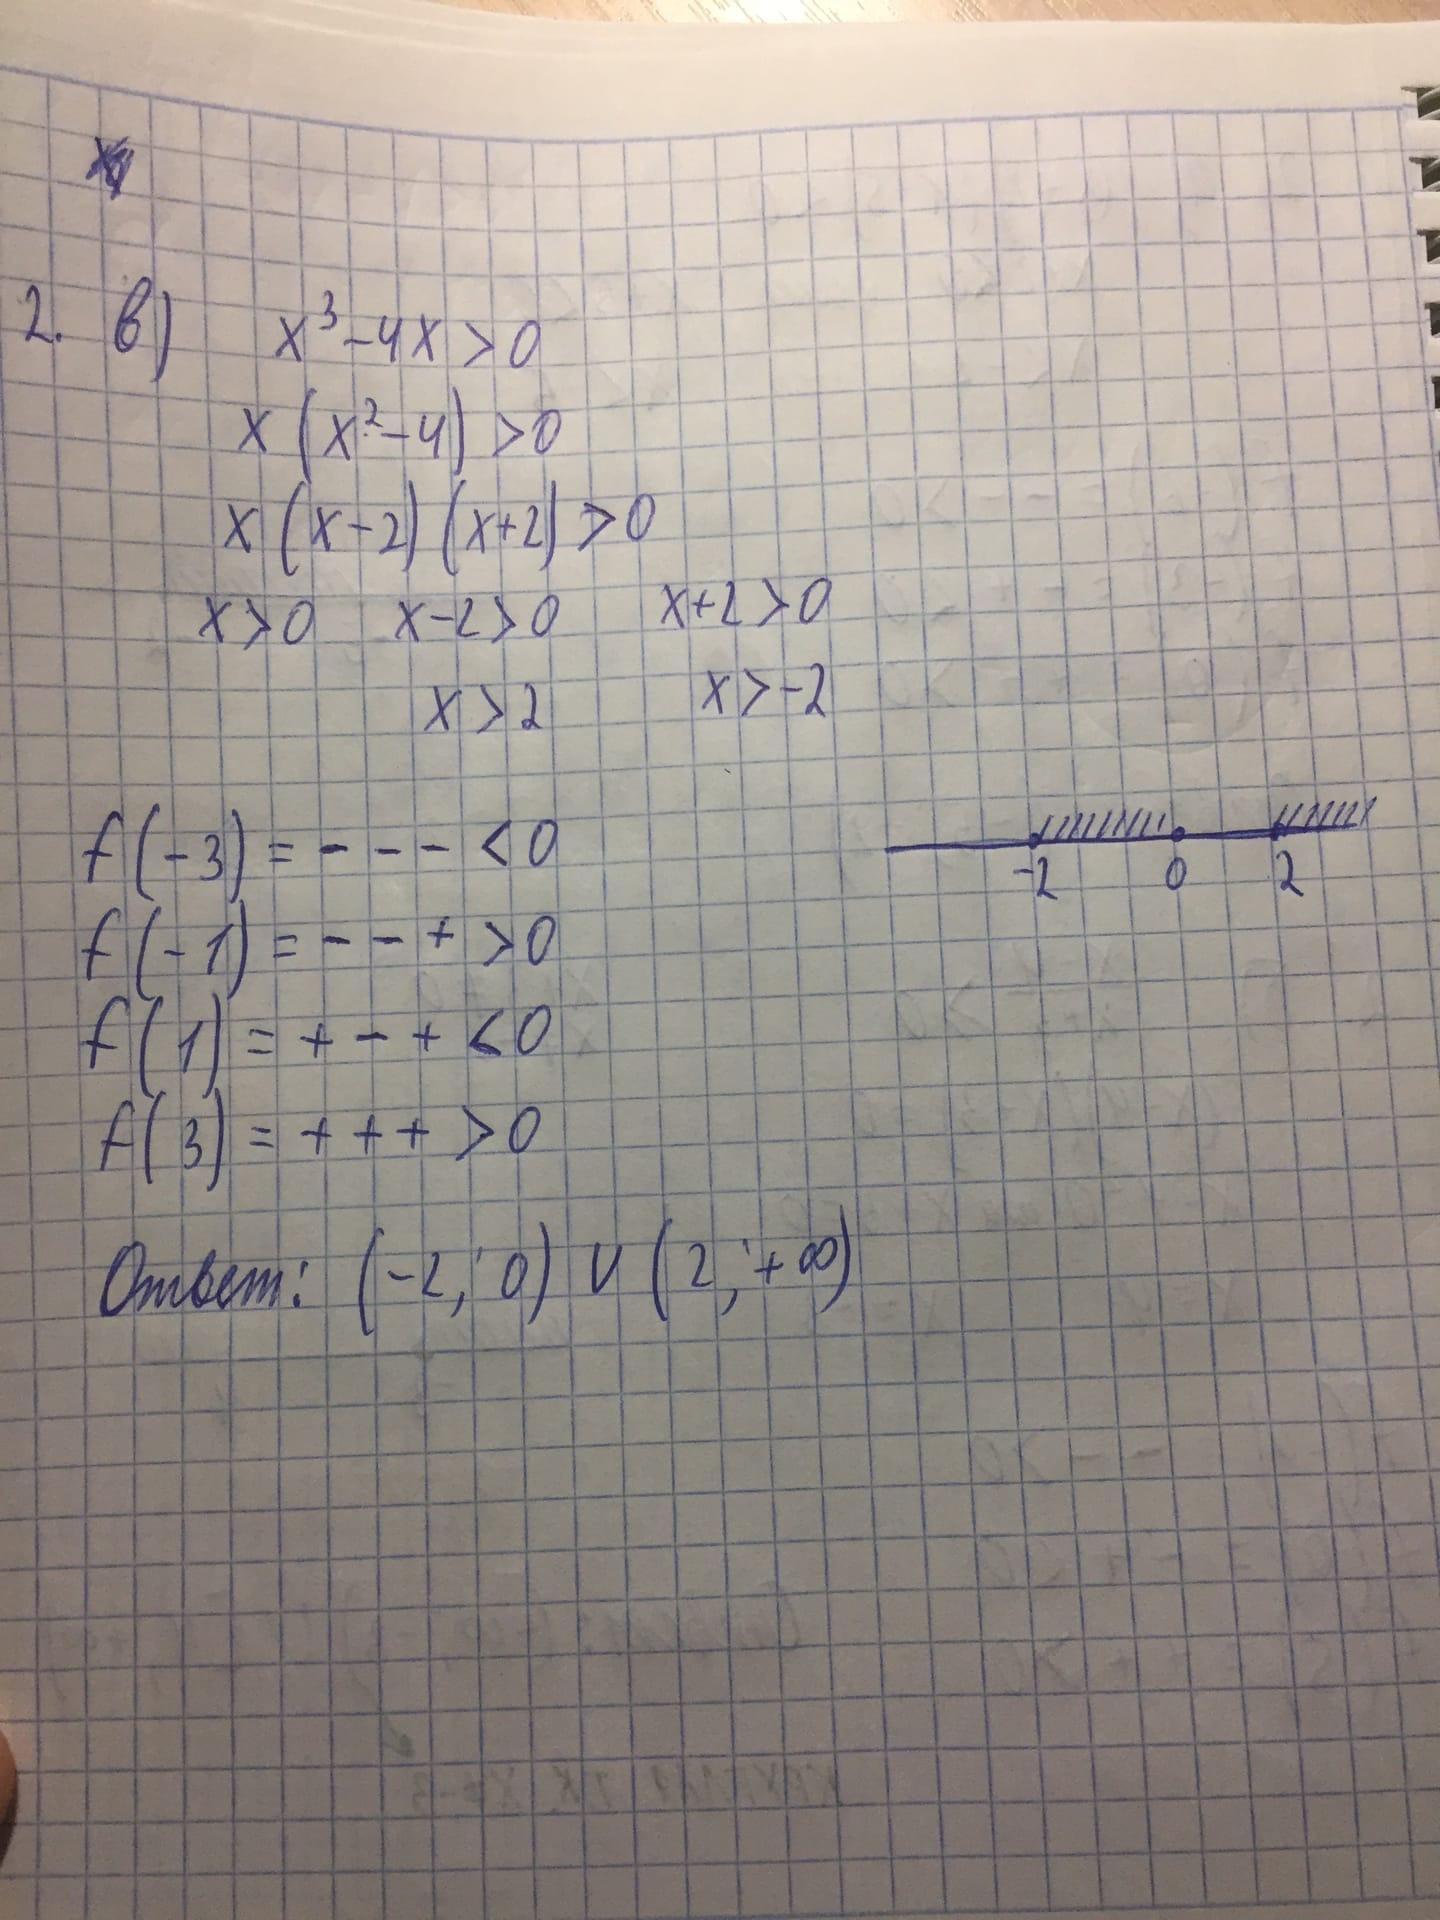 2. в) x³-4x>0
x(x²-4)>0
x(x-2)(x+2)>0
x>0 x-2>0 x+2>0
x>2 x>-2
-2 0 2
f(-3) = - - - <0
f(-1) = - - + >0
f(1) = + - + <0
f(3) = + + + >0
Ответ: (-2; 0) ∪ (2; +∞)